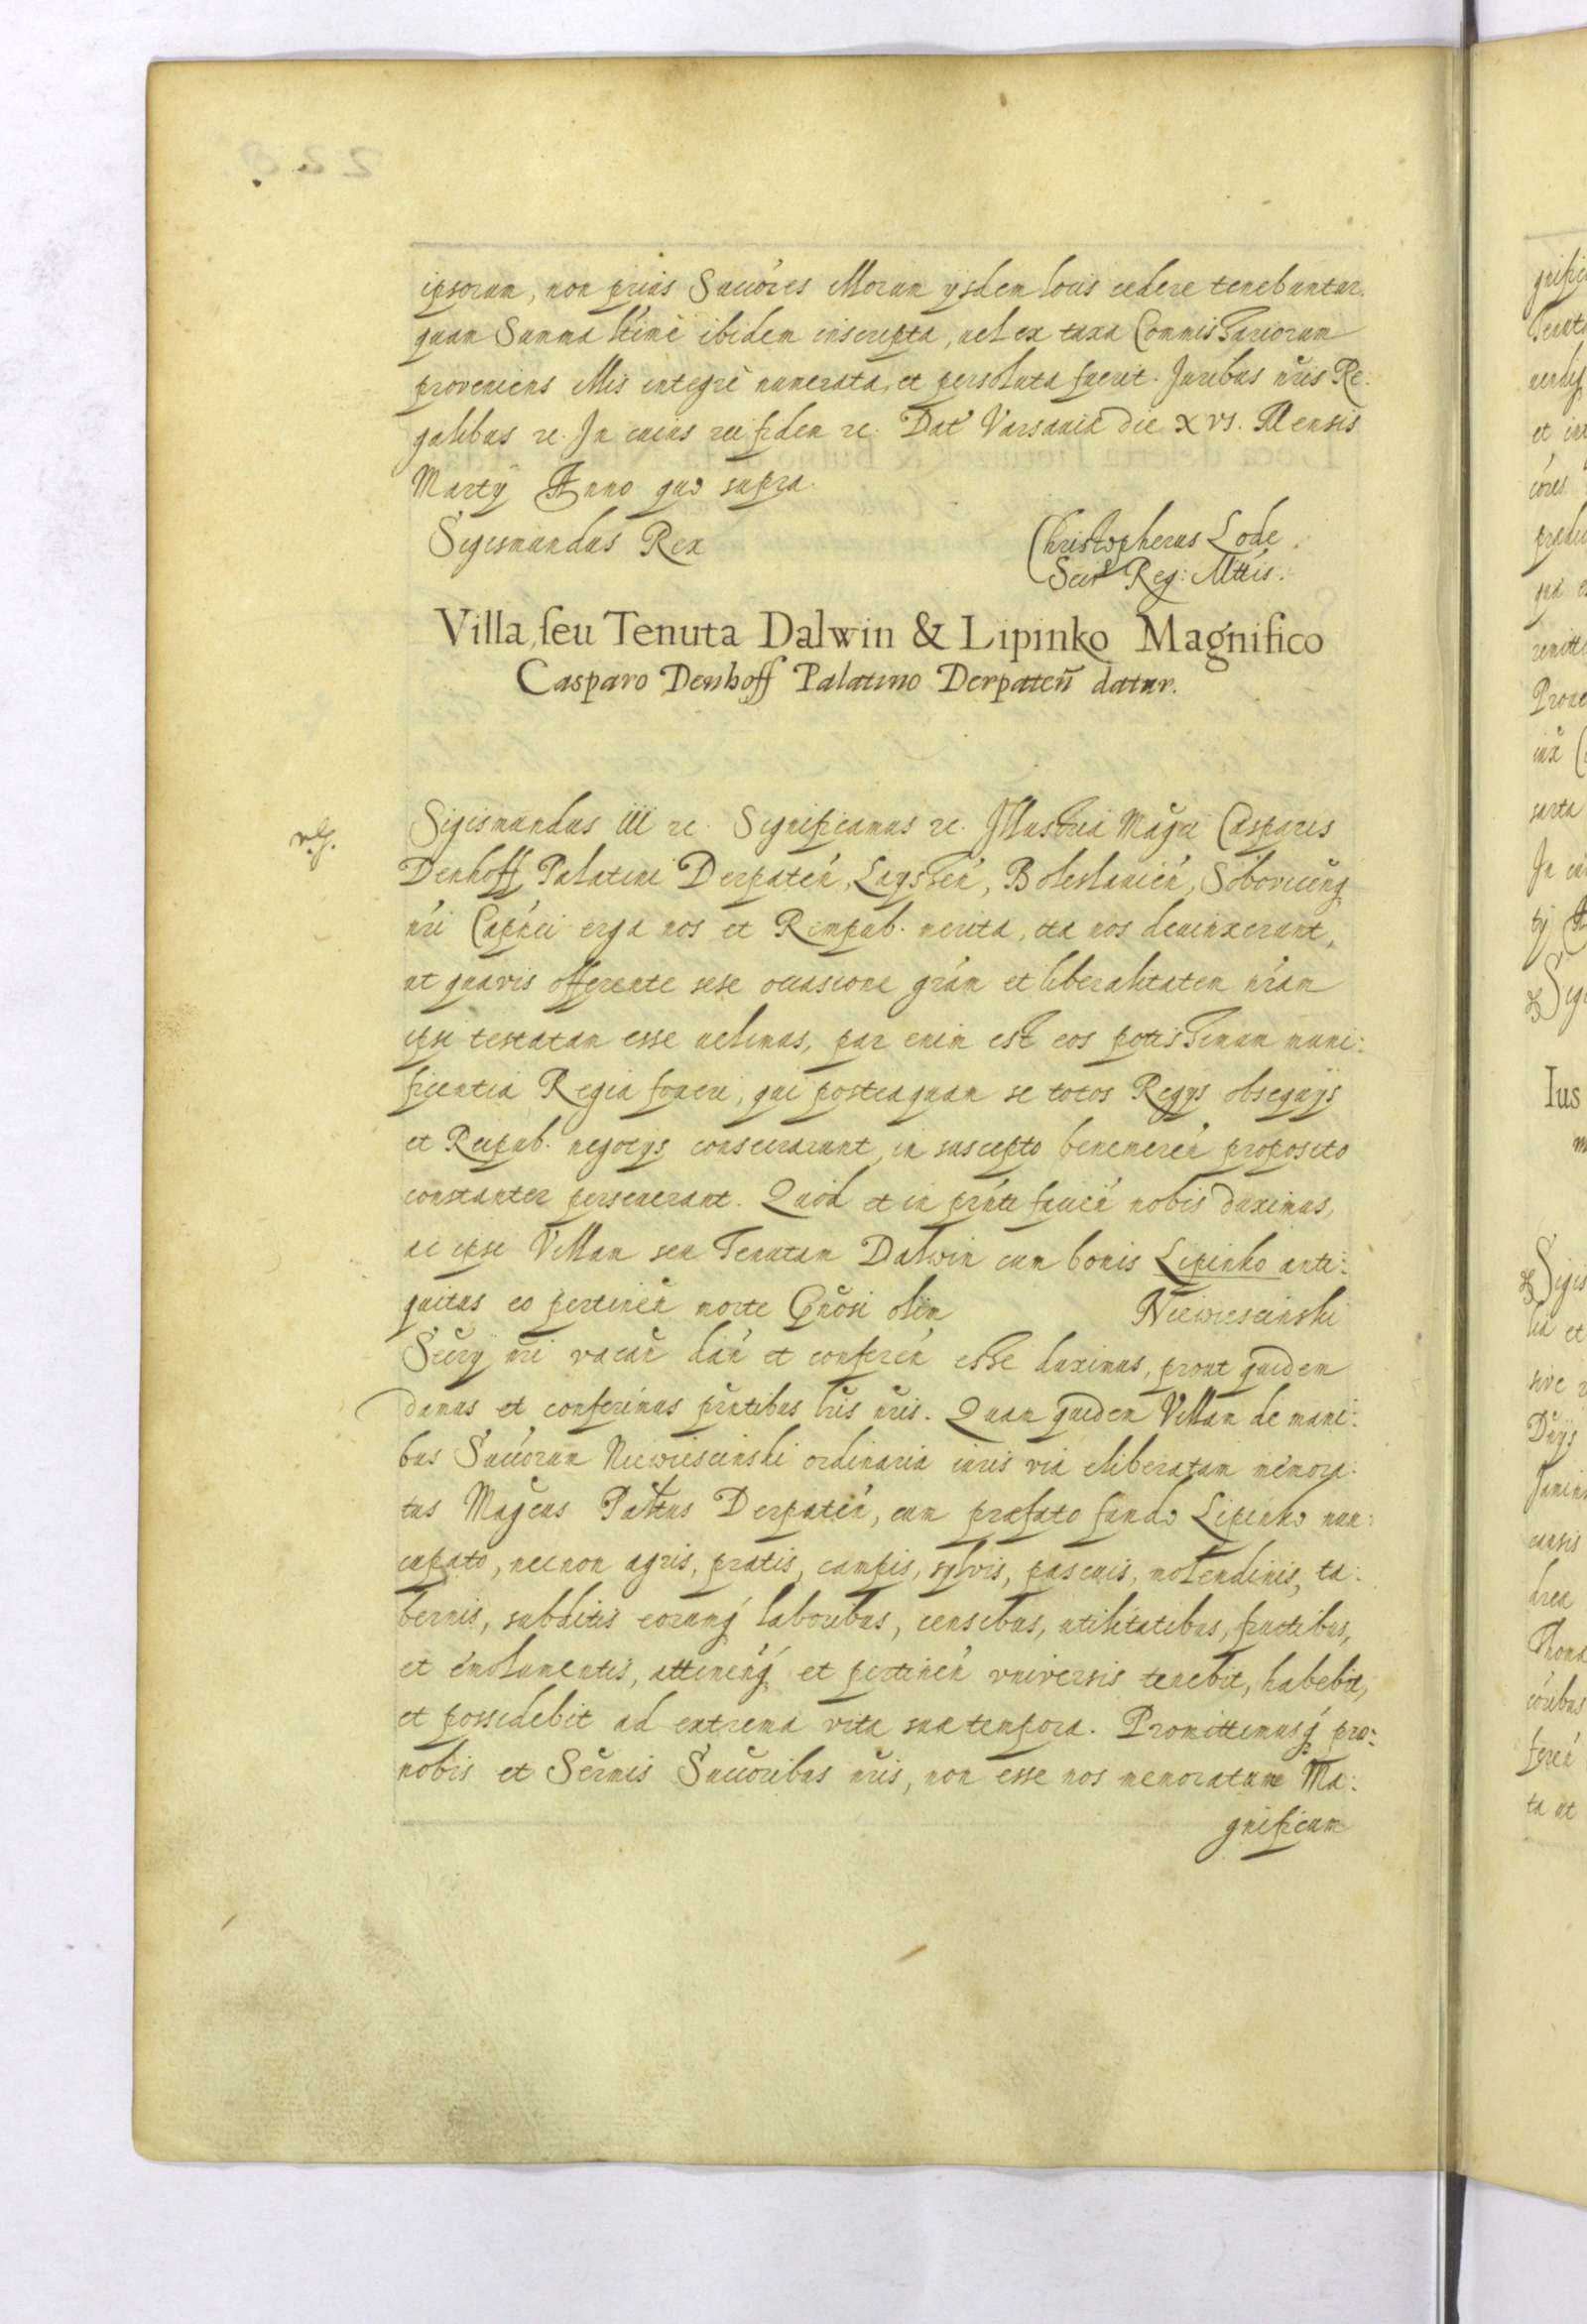 ipsorum, non prius Succ̃ores illorum ijsdem locis cedere tenebuntur.
quam Summa ltime ibidem inscripta, uel ex taxa Commissariorum
proveniens illis integrè numerata et persoluta fuerit. Juribus nr̃is Re:
galibus rc. In cuius rei fidem rc. Dat Varsauiæ die XVI. Mensis
Martij Anno quo supra.
Sigismundus Rex
Christopherus Lode
Secr̃ Reg: Mttis.
Villa seu Tenuta Dalwin & Lipinko Magnifico
Casparo Denhoff Palatino Derpateñ datur.
Sigismundus III rc. Significamus rc. Illustria Magci Casparis
Denhoff Palatini Derpateń, Laysseń, Boleslauień, Soboviceńq
nr̃i Capnei erga nos et Rempub. merita, ita nos deuinxerunt,
ut quavis offerente sese occasione grãm et liberalitatem nr̃am
ipsi testatam esse uelimus, par enim est eos potissimum muni:
ficentia Regia foueri, qui posteaquam se totos Regijs obsequijs
et Reipub. negocijs consecrarunt, in suscepto benemereń proposito
constanter perseuerant. Quod et in prńti facień nobis duximus,
ac ipsi Villam seu Tenutam Dalwin cum bonis Lipinko anti:
quitus eo pertineń morte Gnõsi olim Niewiescinski
Secrij nr̃i vacań dań et confereń esse duximus, prout quidem
damus et conferimus prñtibus lr̃is nr̃is. Quam quidem Villam de mani:
bus Succ̃orum Niewiescinski ordinaria iuris via eliberatam memora:
tus Magcus Palttus Derpateń, cum præfato fundo Lipinko nun:
cupato, necnon agris, pratis, campis, sylvis, pascuis, molendinis, ta:
bernis, subditis eorumq́ laboribus, censibus, utilitatibus, fructibus,
et emolumentis, attineńq́ et pertineń vniversis tenebit, habebit,
et possidebit ad extrema vitæ suæ tempora. Promittimusq́ pro:
nobis et Serm̃is Succ̃oribus nr̃is, non esse nos memoratum Ma:
gnificum